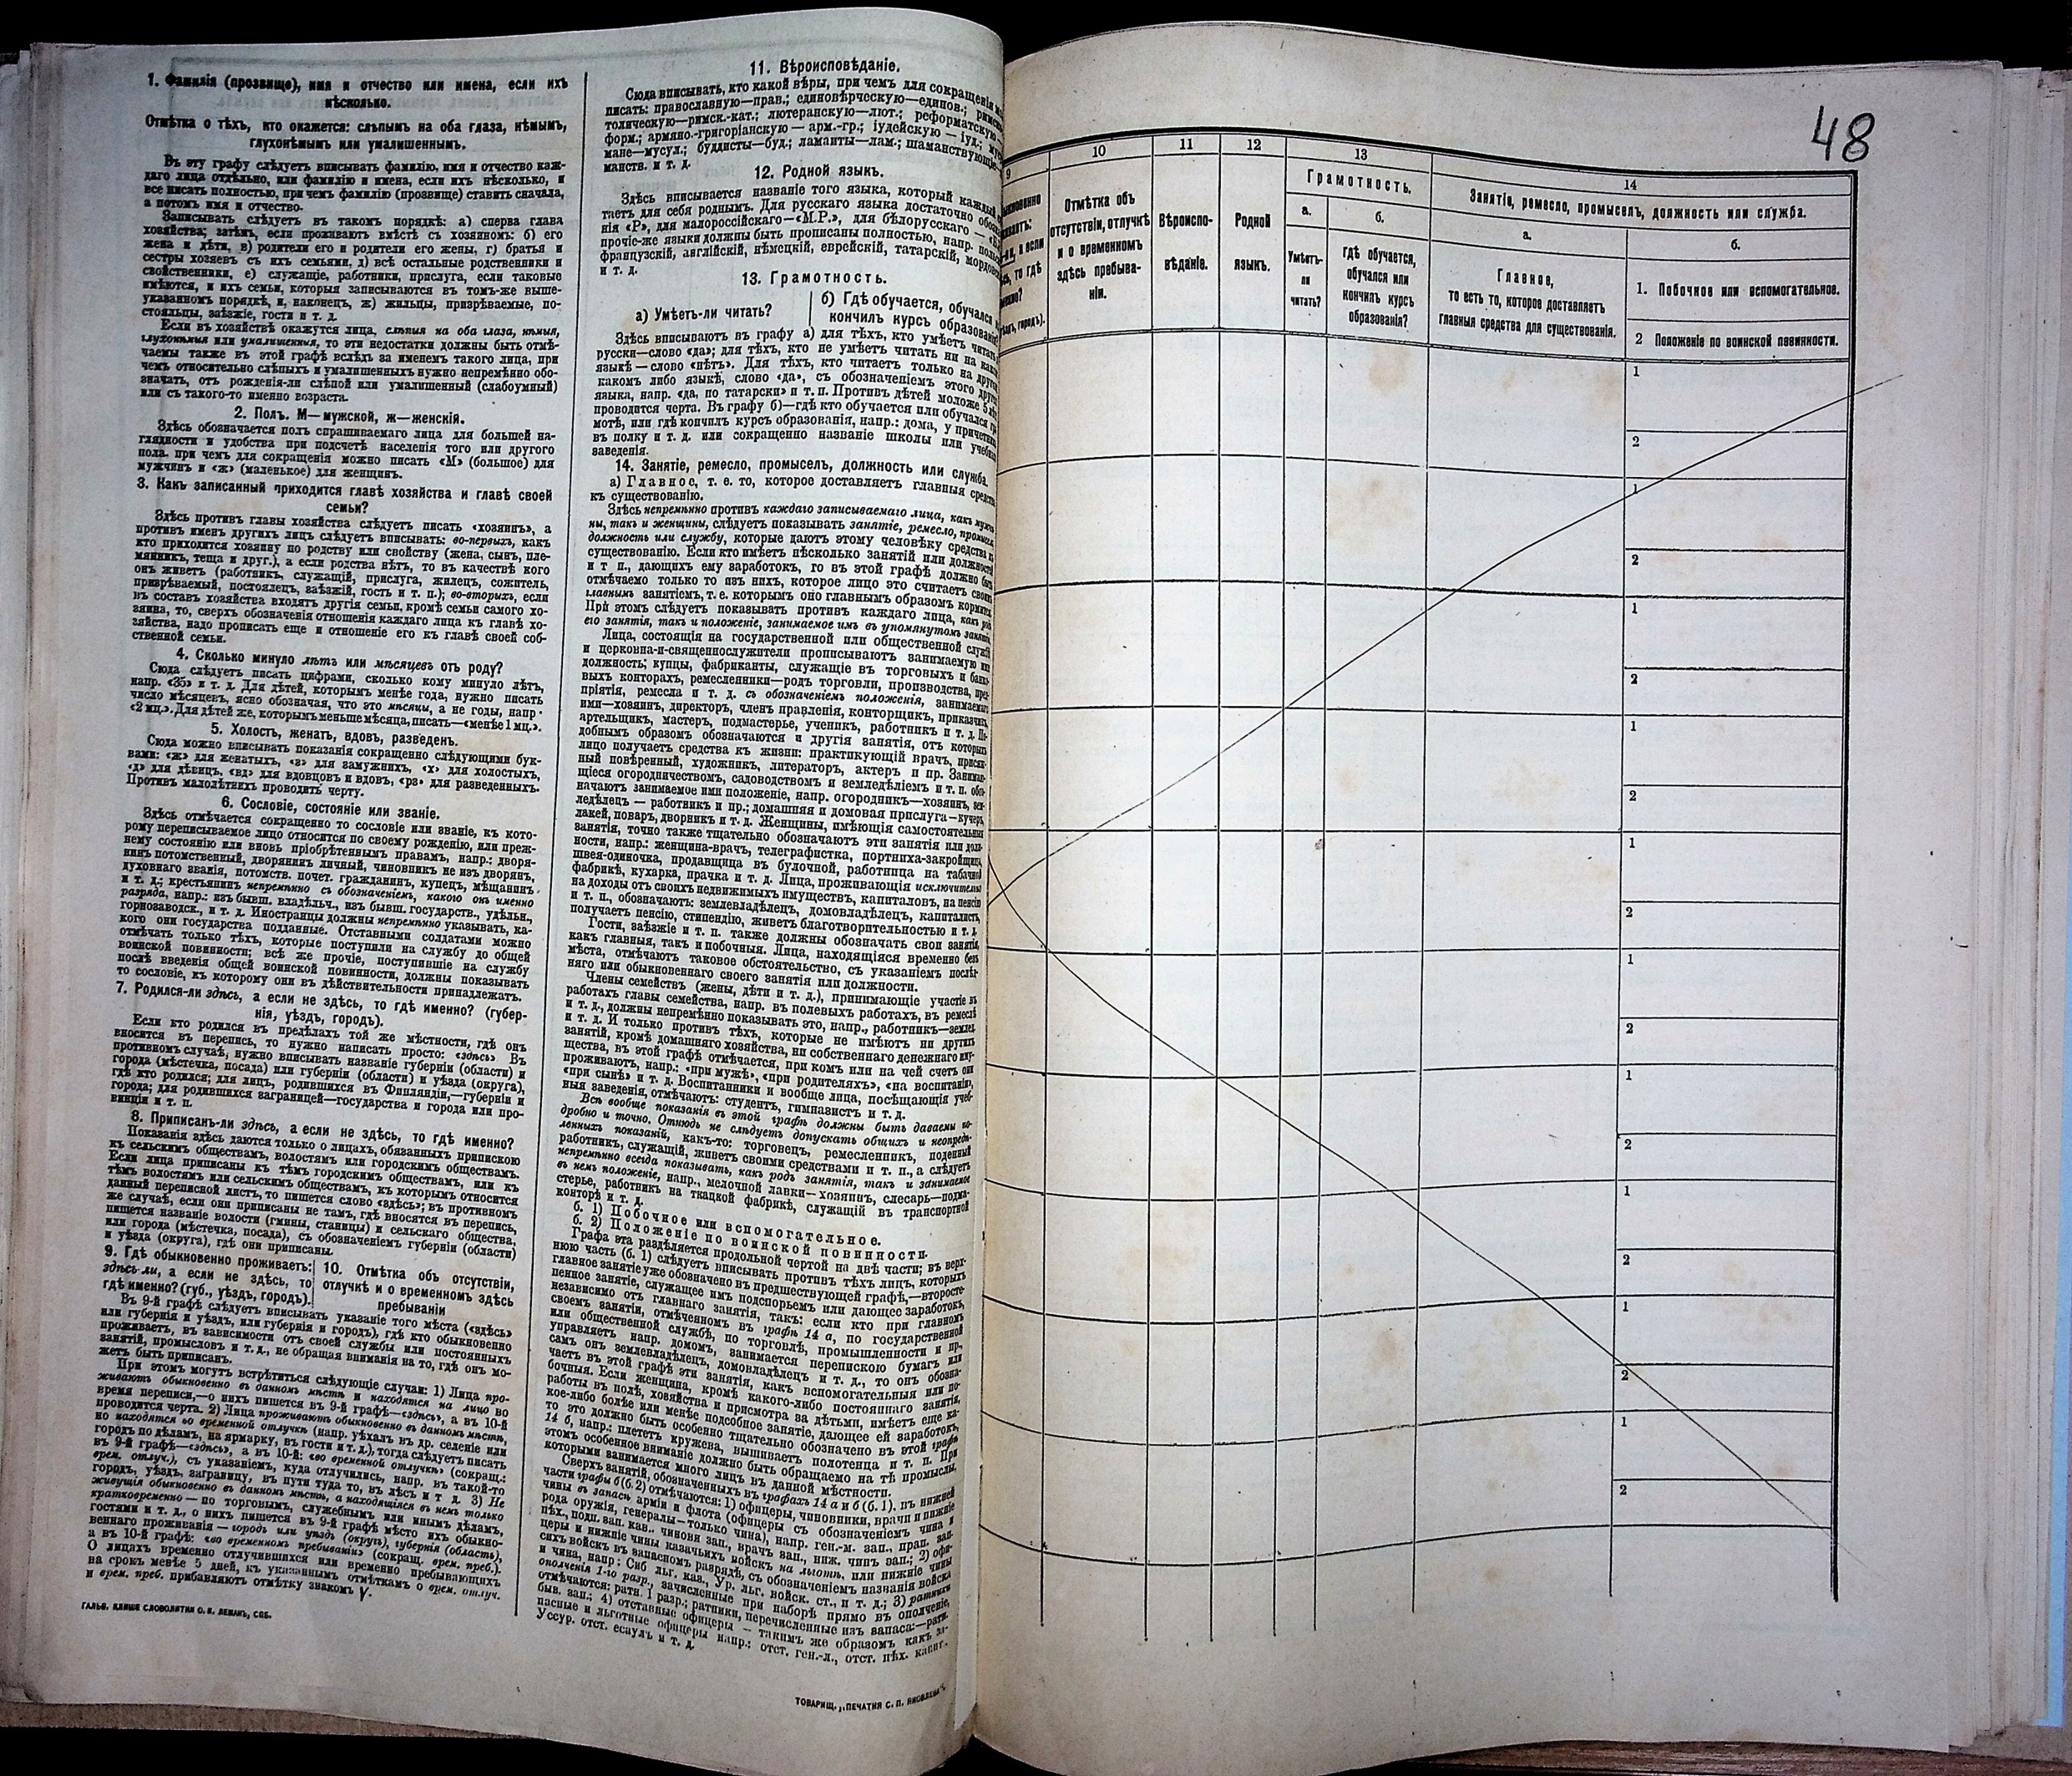 1. Фамилія (прозвище), имя и отчество или имена, если ихъ
нѣсколько.
Отмѣтка о тѣхъ, кто окажется: слѣпымъ на оба глаза, нѣмымъ,
глухонѣмымъ или умалишеннымъ.
Въ эту графу слѣдуетъ вписывать фамилію, имя и отчество каж-
даго лица отдѣльно, или фамилію и имена, если ихъ нѣсколько, и
все писать полностью, при чемъ фамилію (прозвище) ставить сначала,
а потомъ имя и отчество.
Записывать слѣдуетъ въ такомъ порядкѣ: а) сперва глава
хозяйства; затѣмъ, если проживаютъ вмѣстѣ съ хозяиномъ: б) его
жена и дѣти, в) родители его и родители его жены, г) братья и
сестры хозяевъ съ ихъ семьями, д) всѣ остальные родственники и
свойственники, е) служащіе, работники, прислуга, если таковые
имѣются, и ихъ семьи, которыя записываются въ томъ-же выше-
указанномъ порядкѣ, и, наконецъ, ж) жильцы, призрѣваемые, по-
стояльцы, заѣзжіе, гости и т. д.
Если въ хозяйствѣ окажутся лица, слѣпыя на оба глаза, нѣмыя,
глухонѣмыя или умалишенныя, то эти недостатки должны быть отмѣ-
чаемы также въ этой графѣ вслѣдъ за именемъ такого лица, при
чемъ относительно слѣпыхъ и умалишенныхъ нужно непремѣнно обо-
значать, отъ рожденія-ли слѣпой или умалишенный (слабоумный)
или съ такого-то именно возраста.
2. Полъ. М—мужской, ж—женскій.
Здѣсь обозначается полъ спрашиваемаго лица для большей на-
глядности и удобства при подсчетѣ населенія того или другого
пола. при чемъ для сокращенія можно писать «М» (большое) для
мужчинъ и «ж» (маленькое) для женщинъ.
3. Какъ записанный приходится главѣ хозяйства и главѣ своей
семьи?
Здѣсь противъ главы хозяйства слѣдуетъ писать «хозяинъ», а
противъ именъ другихъ лицъ слѣдуетъ вписывать: во-первыхъ, какъ
кто приходится хозяину по родству или свойству (жена, сынъ, пле-
мянникъ, теща и друг.), а если родства нѣтъ, то въ качествѣ кого
онъ живетъ (работникъ, служащій, прислуга, жилецъ, сожитель,
призрѣваемый, постоялецъ, заѣзжій, гость и т. п.); во-вторыхъ, если
въ составъ хозяйства входятъ другія семьи, кромѣ семьи самого хо-
зяина, то, сверхъ обозначенія отношенія каждаго лица къ главѣ хо-
зяйства, надо прописать еще и отношеніе его къ главѣ своей соб-
ственной семьи.
4. Сколько минуло лѣтъ или мѣсяцевъ отъ роду?
Сюда слѣдуетъ писать цифрами, сколько кому минуло лѣтъ,
напр. «35» и т. д. Для дѣтей, которымъ менѣе года, нужно писать
число мѣсяцевъ, ясно обозначая, что это мѣсяцы, а не годы, напр.
«2 мц.». Для дѣтей же, которымъ меньше мѣсяца, писать—«менѣе 1 мц.».
5. Холостъ, женатъ, вдовъ, разведенъ.
Сюда можно вписывать показанія сокращенно слѣдующими бук-
вами: «ж» для женатыхъ, «з» для замужнихъ, «х» для холостыхъ,
«д» для дѣвицъ, «вд» для вдовцовъ и вдовъ, «рз» для разведенныхъ.
Противъ малолѣтнихъ проводить черту.
6. Сословіе, состояніе или званіе.
Здѣсь отмѣчается сокращенно то сословіе или званіе, къ кото-
рому переписываемое лицо относится по своему рожденію, или преж-
нему состоянію или вновь пріобрѣтеннымъ правамъ, напр.: дворя-
нинъ потомственный, дворянинъ личный, чиновникъ не изъ дворянъ,
духовнаго званія, потомств. почет. гражданинъ, купецъ, мѣщанинъ
и т. д.; крестьянинъ непремѣнно съ обозначеніемъ, какого онъ именно
разряда, напр.: изъ бывш. владѣльч., изъ бывш. государств., удѣльн.,
горнозаводск., и т. д. Иностранцы должны непремѣнно указывать, ка-
кого они государства подданные. Отставными солдатами можно
отмѣчать только тѣхъ, которые поступили на службу до общей
воинской повинности; всѣ же прочіе, поступившіе на службу
послѣ введенія общей воинской повинности, должны показывать
то сословіе, къ которому они въ дѣйствительности принадлежатъ.
7. Родился-ли здѣсь, а если не здѣсь, то гдѣ именно? (губер-
нія, уѣздъ, городъ).
Если кто родился въ предѣлахъ той же мѣстности, гдѣ онъ
вносится въ перепись, то нужно написать просто: «здѣсь» Въ
противномъ случаѣ, нужно вписывать названіе губерніи (области) и
города (мѣстечка, посада) или губерніи (области) и уѣзда (округа),
гдѣ кто родился; для лицъ, родившихся въ Финляндіи,—губерніи и
города; для родившихся заграницей—государства и города или про-
винціи и т. п.
8. Приписанъ-ли здѣсь, а если не здѣсь, то гдѣ именно?
Показанія здѣсь даются только о лицахъ, обязанныхъ припискою
къ сельскимъ обществамъ, волостямъ или городскимъ обществамъ.
Если лица приписаны къ тѣмъ городскимъ обществамъ, или къ
тѣмъ волостямъ или сельскимъ обществамъ, къ которымъ относится
данный переписной листъ, то пишется слово «здѣсь»; въ противномъ
же случаѣ, если они приписаны не тамъ, гдѣ вносятся въ перепись,
пишется названіе волости (гмины, станицы) и сельскаго общества,
или города (мѣстечка, посада), съ обозначеніемъ губерніи (области)
и уѣзда (округа), гдѣ они приписаны.
9. Гдѣ обыкновенно проживаетъ:
здѣсь-ли, а если не здѣсь, то
гдѣ именно? (губ., уѣздъ, городъ).
10. Отмѣтка объ отсутствіи,
отлучкѣ и о временномъ здѣсь
пребываніи
Въ 9-й графѣ слѣдуетъ вписывать указаніе того мѣста («здѣсь»
или губернія и уѣздъ, или губернія и городъ), гдѣ кто обыкновенно
проживаетъ, въ зависимости отъ своей службы или постоянныхъ
занятій, промысловъ и т. д., не обращая вниманія на то, гдѣ онъ мо-
жетъ быть приписанъ.
При этомъ могутъ встрѣтиться слѣдующіе случаи: 1) Лица про-
живаютъ обыкновенно въ данномъ мѣстѣ и находятся на лицо во
время переписи,—о нихъ пишется въ 9-й графѣ—«здѣсь», а въ 10-й
проводится черта. 2) Лица проживаютъ обыкновенно въ данномъ мѣстѣ,
но находятся во временной отлучкѣ (напр. уѣхалъ въ др. селеніе или
городъ по дѣламъ, на ярмарку, въ гости и т. д.), тогда слѣдуетъ писать
въ 9-й графѣ—«здѣсь», а въ 10-й: «во временной отлучкѣ» (сокращ.:
врем. отлуч.), съ указаніемъ, куда отлучились, напр. въ такой-то
городъ, уѣздъ, заграницу, въ пути туда то, въ лѣсъ и т. д. 3) Не
живущія обыкновенно въ данномъ мѣстѣ, а находящіяся въ немъ только
кратковременно — по торговымъ, служебнымъ или инымъ дѣламъ,
гостями и т. д., о нихъ пишется въ 9-й графѣ мѣсто ихъ обыкно-
веннаго проживанія — городъ или уѣздъ (округъ), губернія (область),
а въ 10-й графѣ: «во временномъ пребываніи» (сокращ. врем. преб.).
О лицахъ временно отлучившихся или временно пребывающихъ
на срокъ менѣе 5 дней, къ указаннымъ отмѣткамъ о врем. отлуч.
и врем. преб. прибавляютъ отмѣтку знакомъ V.
ГАЛЬВ. КЛИШЕ СЛОВОЛИТНИ О. И. ЛЕМАНЪ, СПБ.
11. Вѣроисповѣданіе.
Сюда вписывать, кто какой вѣры, при чемъ для сокращенія
писать: православную—прав.; единовѣрческую—единов.;
толическую—римск.-кат.; лютеранскую—лют.; реформатскую
форм.; армяно-григоріанскую — арм.-гр.; іудейскую — іуд.;
мане—мусул.; буддисты—буд.; ламаиты—лам.; шаманствующіе
манств. и т. д.
12. Родной языкъ.
Здѣсь вписывается названіе того языка, который каждый
таетъ для себя роднымъ. Для русскаго языка достаточно
нія «Р», для малороссійскаго—«М.Р.», для бѣлорусскаго —
прочіе-же языки должны быть прописаны полностью, напр.
французскій, англійскій, нѣмецкій, еврейскій, татарскій,
и т. д.
13. Грамотность.
а) Умѣетъ-ли читать?
б) Гдѣ обучается, обучался
кончилъ курсъ образованія?
Здѣсь вписываютъ въ графу а) для тѣхъ, кто умѣетъ читать
русски—слово «да»; для тѣхъ, кто не умѣетъ читать ни на
языкѣ—слово «нѣтъ». Для тѣхъ, кто читаетъ только на
какомъ либо языкѣ, слово «да», съ обозначеніемъ этого
языка, напр. «да, по татарски» и т. п. Противъ дѣтей моложе 5
проводится черта. Въ графу б)—гдѣ кто обучается или обучался
мотѣ, или гдѣ кончилъ курсъ образованія, напр.: дома, у
въ полку и т. д. или сокращенно названіе школы или
заведенія.
14. Занятіе, ремесло, промыселъ, должность или служба.
а) Главное, т. е. то, которое доставляетъ главныя средства
къ существованію.
Здѣсь непремѣнно противъ каждаго записываемаго лица, какъ
ны, такъ и женщины, слѣдуетъ показывать занятіе, ремесло, промыселъ,
должность или службу, которые даютъ этому человѣку средства къ
существованію. Если кто имѣетъ нѣсколько занятій или должностей
и т п., дающихъ ему заработокъ, то въ этой графѣ должно быть
отмѣчаемо только то изъ нихъ, которое лицо это считаетъ своимъ
главнымъ занятіемъ, т. е. которымъ оно главнымъ образомъ кормится.
При этомъ слѣдуетъ показывать противъ каждаго лица, какъ родъ
его занятія, такъ и положеніе, занимаемое имъ въ упомянутомъ занятіи.
Лица, состоящія на государственной или общественной службѣ
и церковно-и-священнослужители прописываютъ занимаемую ими
должность; купцы, фабриканты, служащіе въ торговыхъ и банко-
выхъ конторахъ, ремесленники—родъ торговли, производства, пред-
пріятія, ремесла и т. д. съ обозначеніемъ положенія, занимаемаго
ими—хозяинъ, директоръ, членъ правленія, конторщикъ, приказчикъ,
артельщикъ, мастеръ, подмастерье, ученикъ, работникъ и т. д. По-
добнымъ образомъ обозначаются и другія занятія, отъ которыхъ
лицо получаетъ средства къ жизни: практикующій врачъ, присяж-
ный повѣренный, художникъ, литераторъ, актеръ и пр. Занимаю-
щіеся огородничествомъ, садоводствомъ и земледѣліемъ и т. п. обо-
значаютъ занимаемое ими положеніе, напр. огородникъ—хозяинъ, зем-
ледѣлецъ — работникъ и пр.; домашняя и домовая прислуга—кучеръ,
лакей, поваръ, дворникъ и т. д. Женщины, имѣющія самостоятельныя
занятія, точно также тщательно обозначаютъ эти занятія или долж-
ности, напр.: женщина-врачъ, телеграфистка, портниха-закройщица,
швея-одиночка, продавщица въ булочной, работница на табачной
фабрикѣ, кухарка, прачка и т. д. Лица, проживающія исключительно
на доходы отъ своихъ недвижимыхъ имуществъ, капиталовъ, на пенсію
и т. п., обозначаютъ: землевладѣлецъ, домовладѣлецъ, капиталистъ,
получаетъ пенсію, стипендію, живетъ благотворительностью и т. д.
Гости, заѣзжіе и т. п. также должны обозначать свои занятія,
какъ главныя, такъ и побочныя. Лица, находящіяся временно безъ
мѣста, отмѣчаютъ таковое обстоятельство, съ указаніемъ послѣд-
няго или обыкновеннаго своего занятія или должности.
Члены семействъ (жены, дѣти и т. д.), принимающіе участіе въ
работахъ главы семейства, напр. въ полевыхъ работахъ, въ ремеслѣ
и т. д., должны непремѣнно показывать это, напр., работникъ—землед.
и т. д. И только противъ тѣхъ, которые не имѣютъ ни другихъ
занятій, кромѣ домашняго хозяйства, ни собственнаго денежнаго иму-
щества, въ этой графѣ отмѣчается, при комъ или на чей счетъ они
проживаютъ, напр.: «при мужѣ», «при родителяхъ», «на воспитаніи»,
«при сынѣ» и т. д. Воспитанники и вообще лица, посѣщающія учеб-
ныя заведенія, отмѣчаютъ: студентъ, гимназистъ и т. д.
Всѣ вообще показанія въ этой графѣ должны быть даваемы по-
дробно и точно. Отнюдь не слѣдуетъ допускать общихъ и неопредѣ-
ленныхъ показаній, какъ-то: торговецъ, ремесленникъ, поденный
работникъ, служащій, живетъ своими средствами и т. п., а слѣдуетъ
непремѣнно всегда показывать, какъ родъ занятія, такъ и занимаемое
въ немъ положеніе, напр., мелочной лавки—хозяинъ, слесарь—подма-
стерье, работникъ на ткацкой фабрикѣ, служащій въ транспортной
конторѣ и т. д.
б. 1) Побочное или вспомогательное.
б. 2) Положеніе по воинской повинности.
Графа эта раздѣляется продольной чертой на двѣ части; въ верх-
нюю часть (б. 1) слѣдуетъ вписывать противъ тѣхъ лицъ, которыхъ
главное занятіе уже обозначено въ предшествующей графѣ,—второсте-
пенное занятіе, служащее имъ подспорьемъ или дающее заработокъ,
независимо отъ главнаго занятія, такъ: если кто при главномъ
своемъ занятіи, отмѣченномъ въ графѣ 14 а, по государственной
или общественной службѣ, по торговлѣ, промышленности и пр.,
управляетъ напр. домомъ, занимается перепискою бумагъ или
самъ онъ землевладѣлецъ, домовладѣлецъ и т. д., то онъ обозна-
чаетъ въ этой графѣ эти занятія, какъ вспомогательныя или по-
бочныя. Если женщина, кромѣ какого-либо постояннаго занятія,
работы въ полѣ, хозяйства и присмотра за дѣтьми, имѣетъ еще ка-
кое-либо болѣе или менѣе подсобное занятіе, дающее ей заработокъ,
то это должно быть особенно тщательно обозначено въ этой графѣ
14 б, напр.: плететъ кружева, вышиваетъ полотенца и т. п. При
этомъ особенное вниманіе должно быть обращаемо на тѣ промыслы,
которыми занимается много лицъ въ данной мѣстности.
Сверхъ занятій, обозначенныхъ въ графахъ 14 а и б (б. 1), въ нижней
части графы б (б. 2) отмѣчаются: 1) офицеры, чиновники, врачи и нижніе
чины въ запасѣ арміи и флота (офицеры съ обозначеніемъ чина и
рода оружія, генералы—только чина), напр. ген.-м. зап., прап. зап.
пѣх., подп. зап. кав., чиновн зап., врачъ зап., ниж. чинъ зап.; 2) офи-
церы и нижніе чины казачьихъ войскъ на льготѣ, или нижніе чины
сихъ войскъ въ запасномъ разрядѣ, съ обозначеніемъ названія войска
и чина, напр: Сиб льг. кав., Ур. льг. войск. ст., и т. д.; 3) ратники
ополченія 1-го разр., зачисленные при наборѣ прямо въ ополченіе,
отмѣчаются: ратн. 1 разр.; ратники, перечисленные изъ запаса:—ратн.
быв. зап.; 4) отставные офицеры — такимъ же образомъ какъ за-
пасные и льготные офицеры напр.: отст. ген.-л., отст. пѣх. капит.,
Уссур. отст. есаулъ и т. д.
ТОВАРИЩ. „ПЕЧАТНЯ С. П. ЯКОВЛЕВА".
48
9
10
11
12
13
14
Грамотность.
Занятіе, ремесло, промыселъ, должность или служба.
Отмѣтка объ
отсутствіи, отлучкѣ
и о временномъ
здѣсь пребыва-
ніи.
Вѣроиспо-
вѣданіе.
Родной
языкъ.
а.
Умѣетъ-
ли
читать?
б.
гдѣ обучается,
обучался или
кончилъ курсъ
образованія?
а.
Главное,
то есть то, которое доставляетъ
главныя средства для существованія.
б.
1. Побочное или вспомогательное.
2 Положеніе по воинской повинности.
1
2
1
2
1
2
1
2
1
2
1
2
1
2
1
2
1
2
1
2